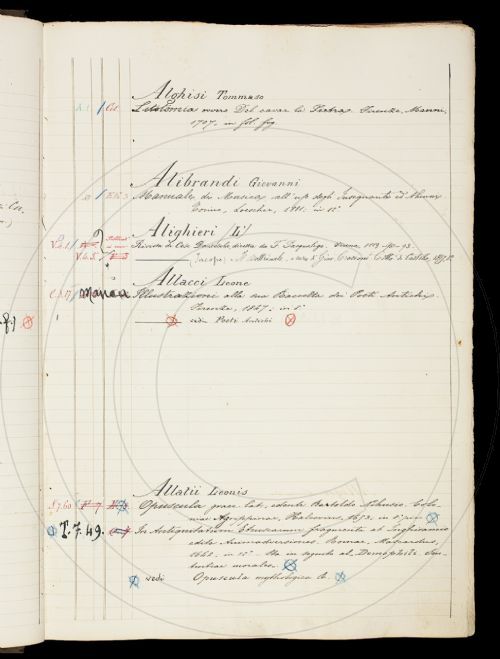 Alghisi Tommaso
Litotomia ovvero Del cavar la Pietra. Firenze, Manni,
1707, in fol. fig
Alibrandi Giovanni
Manuale di Musica all'uso degli Insegnanti ed Alunni
Torino, Loescher, 1881. in 12°
Alighieri L'
Rivista di Cose Dantesche, diretta da F. Pasqualigo. Verona, 1889-90-93
Allacci Leone
manca Illustrazioni alla sua Raccolta dei Poeti Antichi
Firenze, 1847, in 8°
vedi Poeti Antichi
Allatii Leonis
Opuscula graec. lat. edente Bartoldo Nihusio. Colo-
niae Agrippinae, Kalcovius, 1653, in 8° picc
T. 7. 49. In Antiquitatum Etruscarum fragmenta ab Inghiramio
edita Animadversiones. Romae, Mascardus,
1642, in 12° Sta in seguito al Demophili Sen-
tentiae morales.
vedi Opuscula mythologica &.